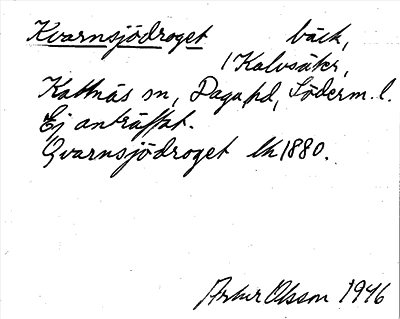 Kvarnsjödroget bäck,
/ Kalvsäter,
Kattnäs sn, Daga hd, Söderm. l.
Ej anträffat.
Qvarnsjödroget lk 1880.
Artur Olsson 1946